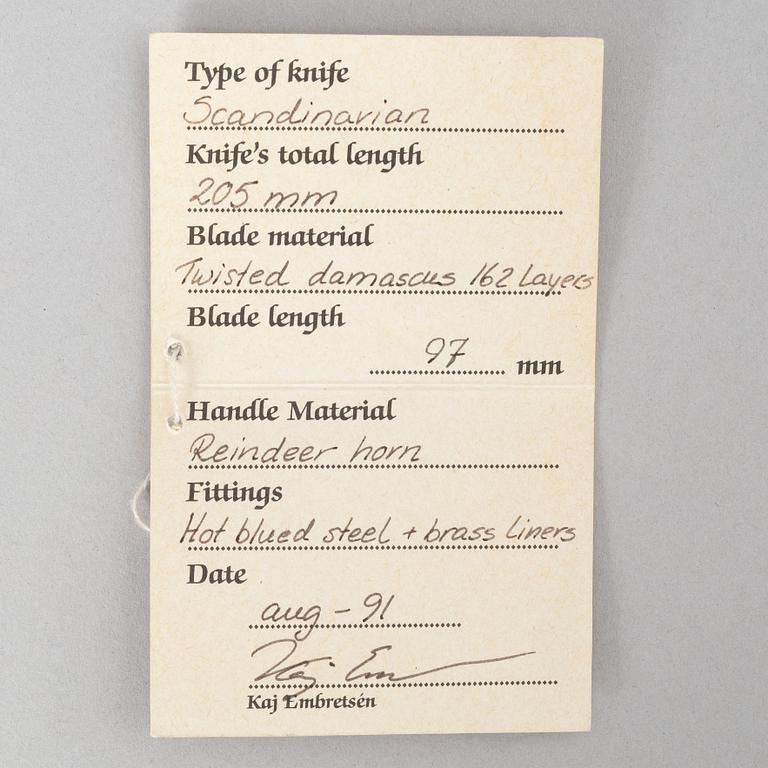 Type of knife
Scandinavian
Knife's total length
205 mm
Blade material
Twisted damascus 162 Layers
Blade length
97 mm
Handle Material
Reindeer horn
Fittings
Hot blued steel + brass liners
Date
aug - 91
Kaj Em
Kaj Embretsén